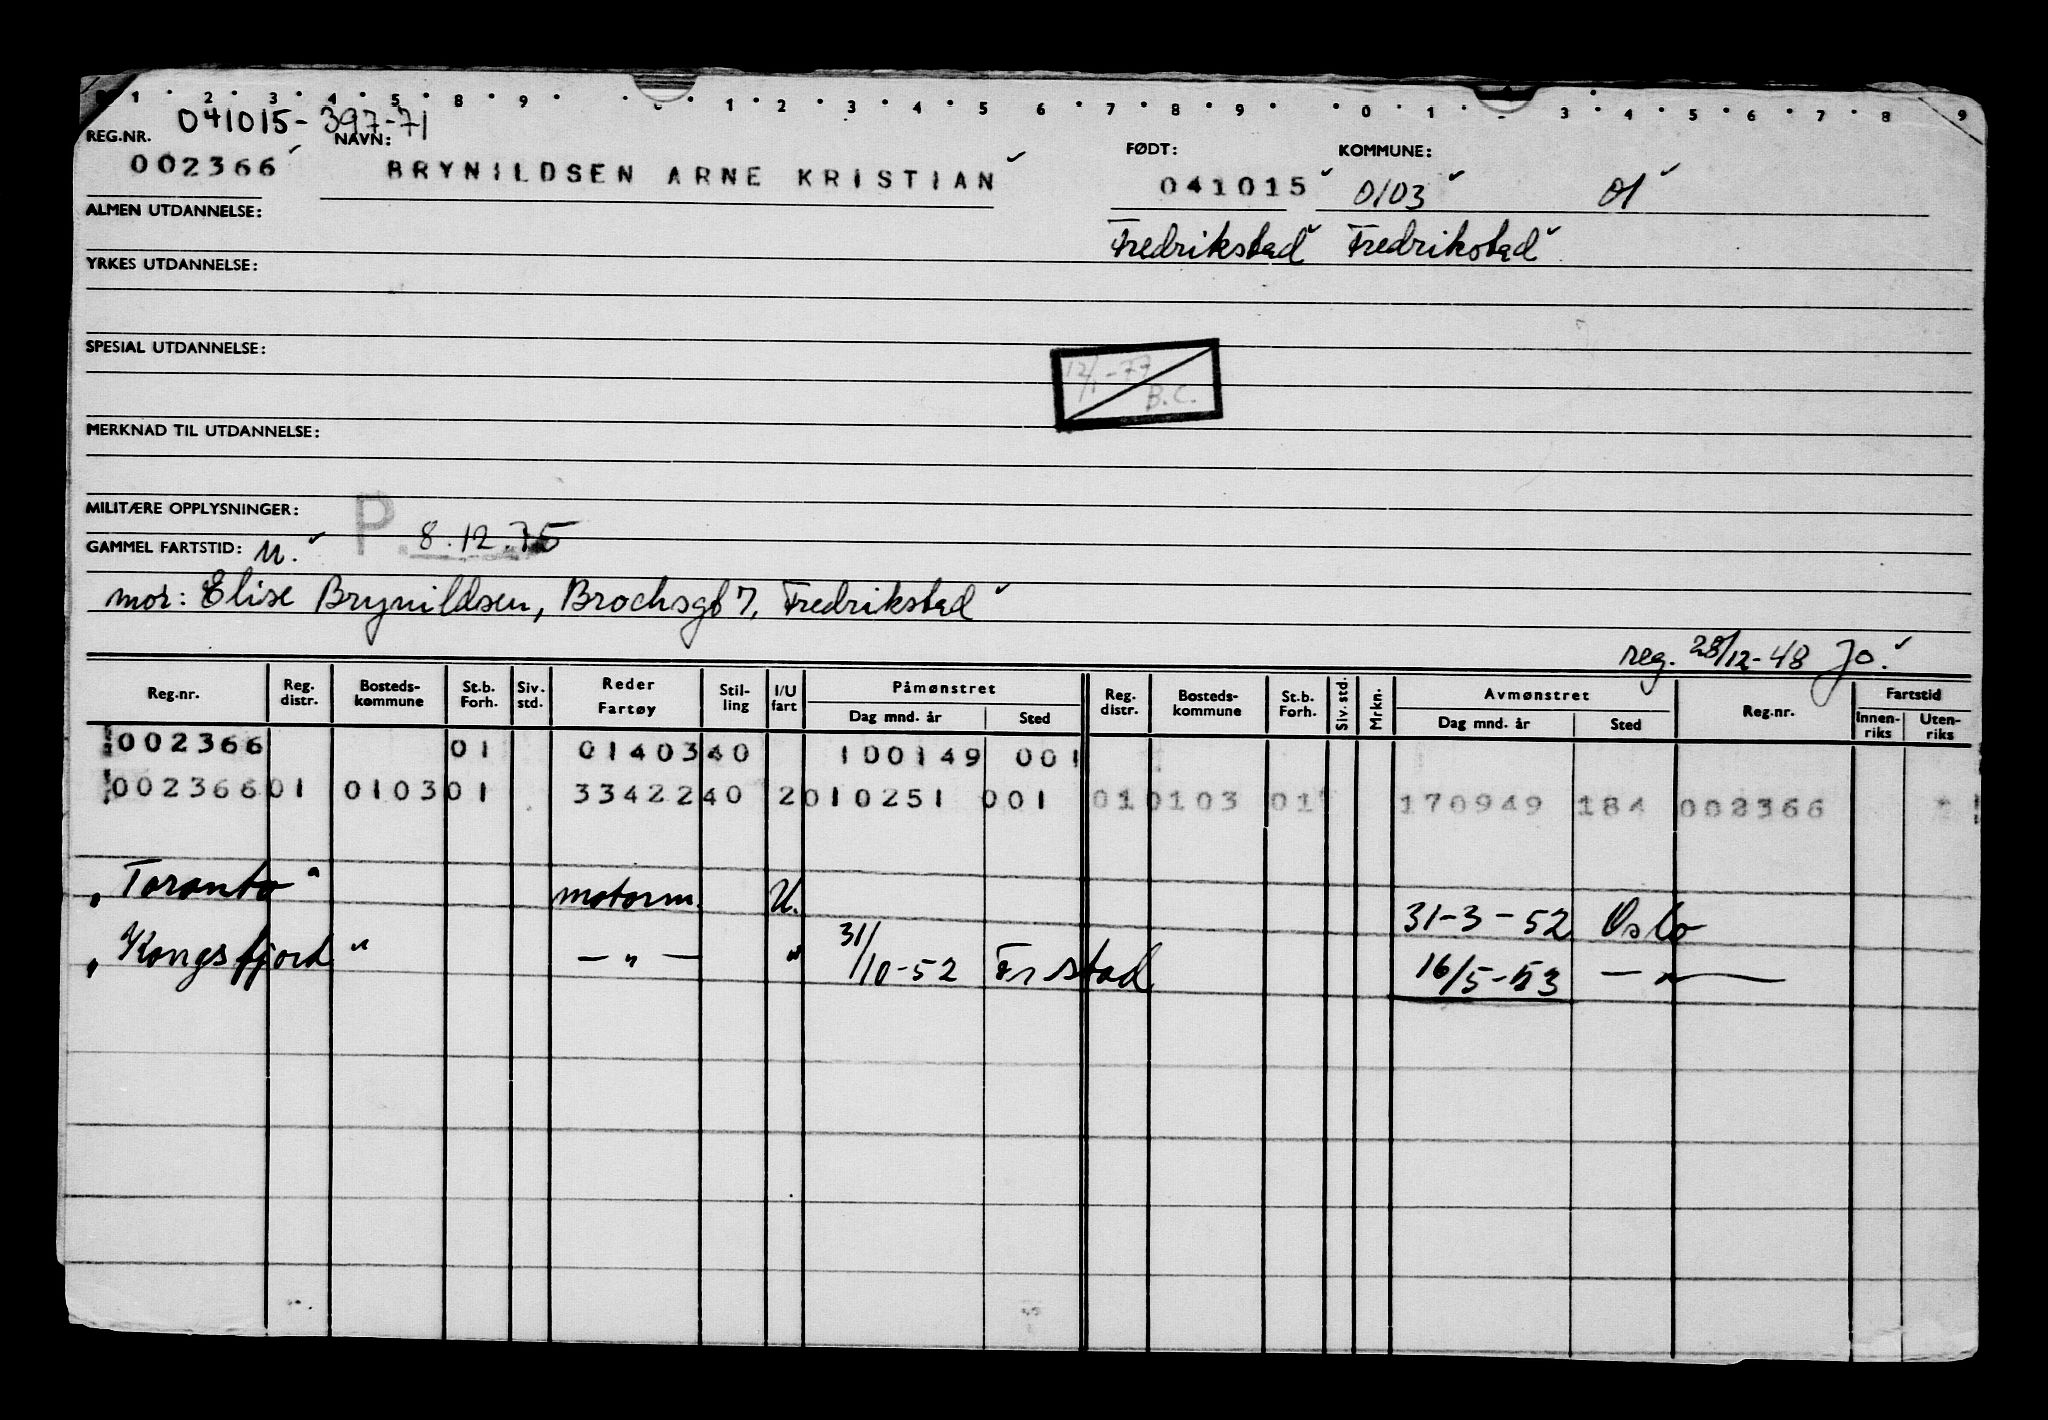 1 2 3 4 5 8 9 1 2 3 4 5 6 7 8 9 0 1 3 4 5 6 7 8 9
041015-397-71
REG.NR. NAVN: FØDT: KOMMUNE:
002366 BRYNILDSEN ARNE KRISTIAN 041015 0103 01
ALMEN UTDANNELSE: Fredrikstad Fredrikstad
YRKES UTDANNELSE:
SPESIAL UTDANNELSE:
12/1-77
B.C.
MERKNAD TIL UTDANNELSE:
MILITÆRE OPPLYSNINGER: P
GAMMEL FARTSTID: U. 8.12.75
mor: Elise Brynildsen, Brochsgt 7, Fredrikstad
reg. 28/12-48 Jo.
Reg.nr. Reg. distr. Bosteds-kommune St.b. Forh. Siv. std. Reder Fartøy Stil-ling I/U fart Påmønstret Dag mnd. år Sted Reg. distr. Bosteds-kommune St.b. Forh. Siv. std. Mrkn. Avmønstret Dag mnd. år Sted Reg.nr. Fartstid Innen-riks Uten-riks
002366 01 01403 40 100149 001
002366 01 0103 01 33422 40 2 010251 001 01 0103 01 170949 184 002366
„Toronto" motorm. U. 31-3-52 Oslo
„Kongsfjord" — „ — " 31/10-52 Frstad 16/5-53 — " —